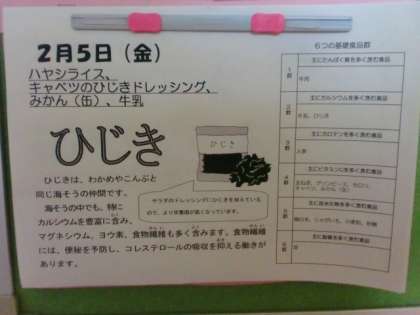 2月5日(金)
ハヤシライス、
キャベツのひじきドレッシング、
みかん(缶)、牛乳
ひじき
ひじき
サラダのドレッシングにひじきを加えているので、より栄養価が高くなっています。
ひじきは、わかめやこんぶと
同じ海そうの仲間です。
海そうの中でも、特に
カルシウムを豊富に含み、
マグネシウム、ヨウ素、食物繊維も多く含みます。食物繊維
には、便秘を予防し、コレステロールの吸収を抑える働きが
あります。
6つの基礎食品群
1群
主にたんぱく質を多く含む食品
2群
主にカルシウムを多く含む食品
牛乳、ひじき
3群
主にカロテンを多く含む食品
人参
4群
主にビタミンCを多く含む食品
5群
主に炭水化物を多く含む食品
6群
主に脂質を多く含む食品